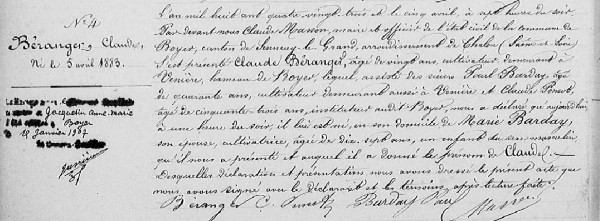 N° 4
Béranger, Claude,
Né le 5 avril 1883.
à Jacquelin Anne-Marie
à Boyer
19 janvier 1907
L'an mil huit cent quatre vingt trois et le cinq avril, à sept heures du soir
Par devant nous Claude Masson, maire et officier de l'état civil de la commune de
Boyer, canton de Sennecey le Grand, arrondissement de Chalon (Saône et Loire)
s'est présenté Claude Béranger, âgé de vingt ans, cultivateur demeurant à
Venière, hameau de Boyer, lequel, assisté des sieurs Paul Barday, âgé
de quarante ans, cultivateur demeurant aussi à Venière et Claude
âgé de cinquante trois ans, instituteur audit Boyer, nous a déclaré qu'aujourd'hui
à une heure du soir, il lui est né, en son domicile de Marie Barday
son épouse, cultivatrice, âgée de dix-sept ans, un enfant du sexe masculin,
qu'il nous a présenté et auquel il a donné le prénom de Claude.
Desquelles déclaration et présentation nous avons dressé le présent acte que
nous avons signé avec le déclarant et les témoins, après lecture faite.
Béranger C. Barday Paul Masson